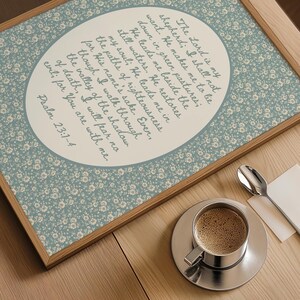 The Lord is my
shepherd, I will not
want. He makes me to lie
down in green pastures
He leads me beside the
still waters. He restores
my soul. He leads me in
the paths of righteousness
for his name's sake. Even
though I walk through
the valley of the shadow
of death, I will fear no
evil, for you are with me.
Psalm 23:1-4